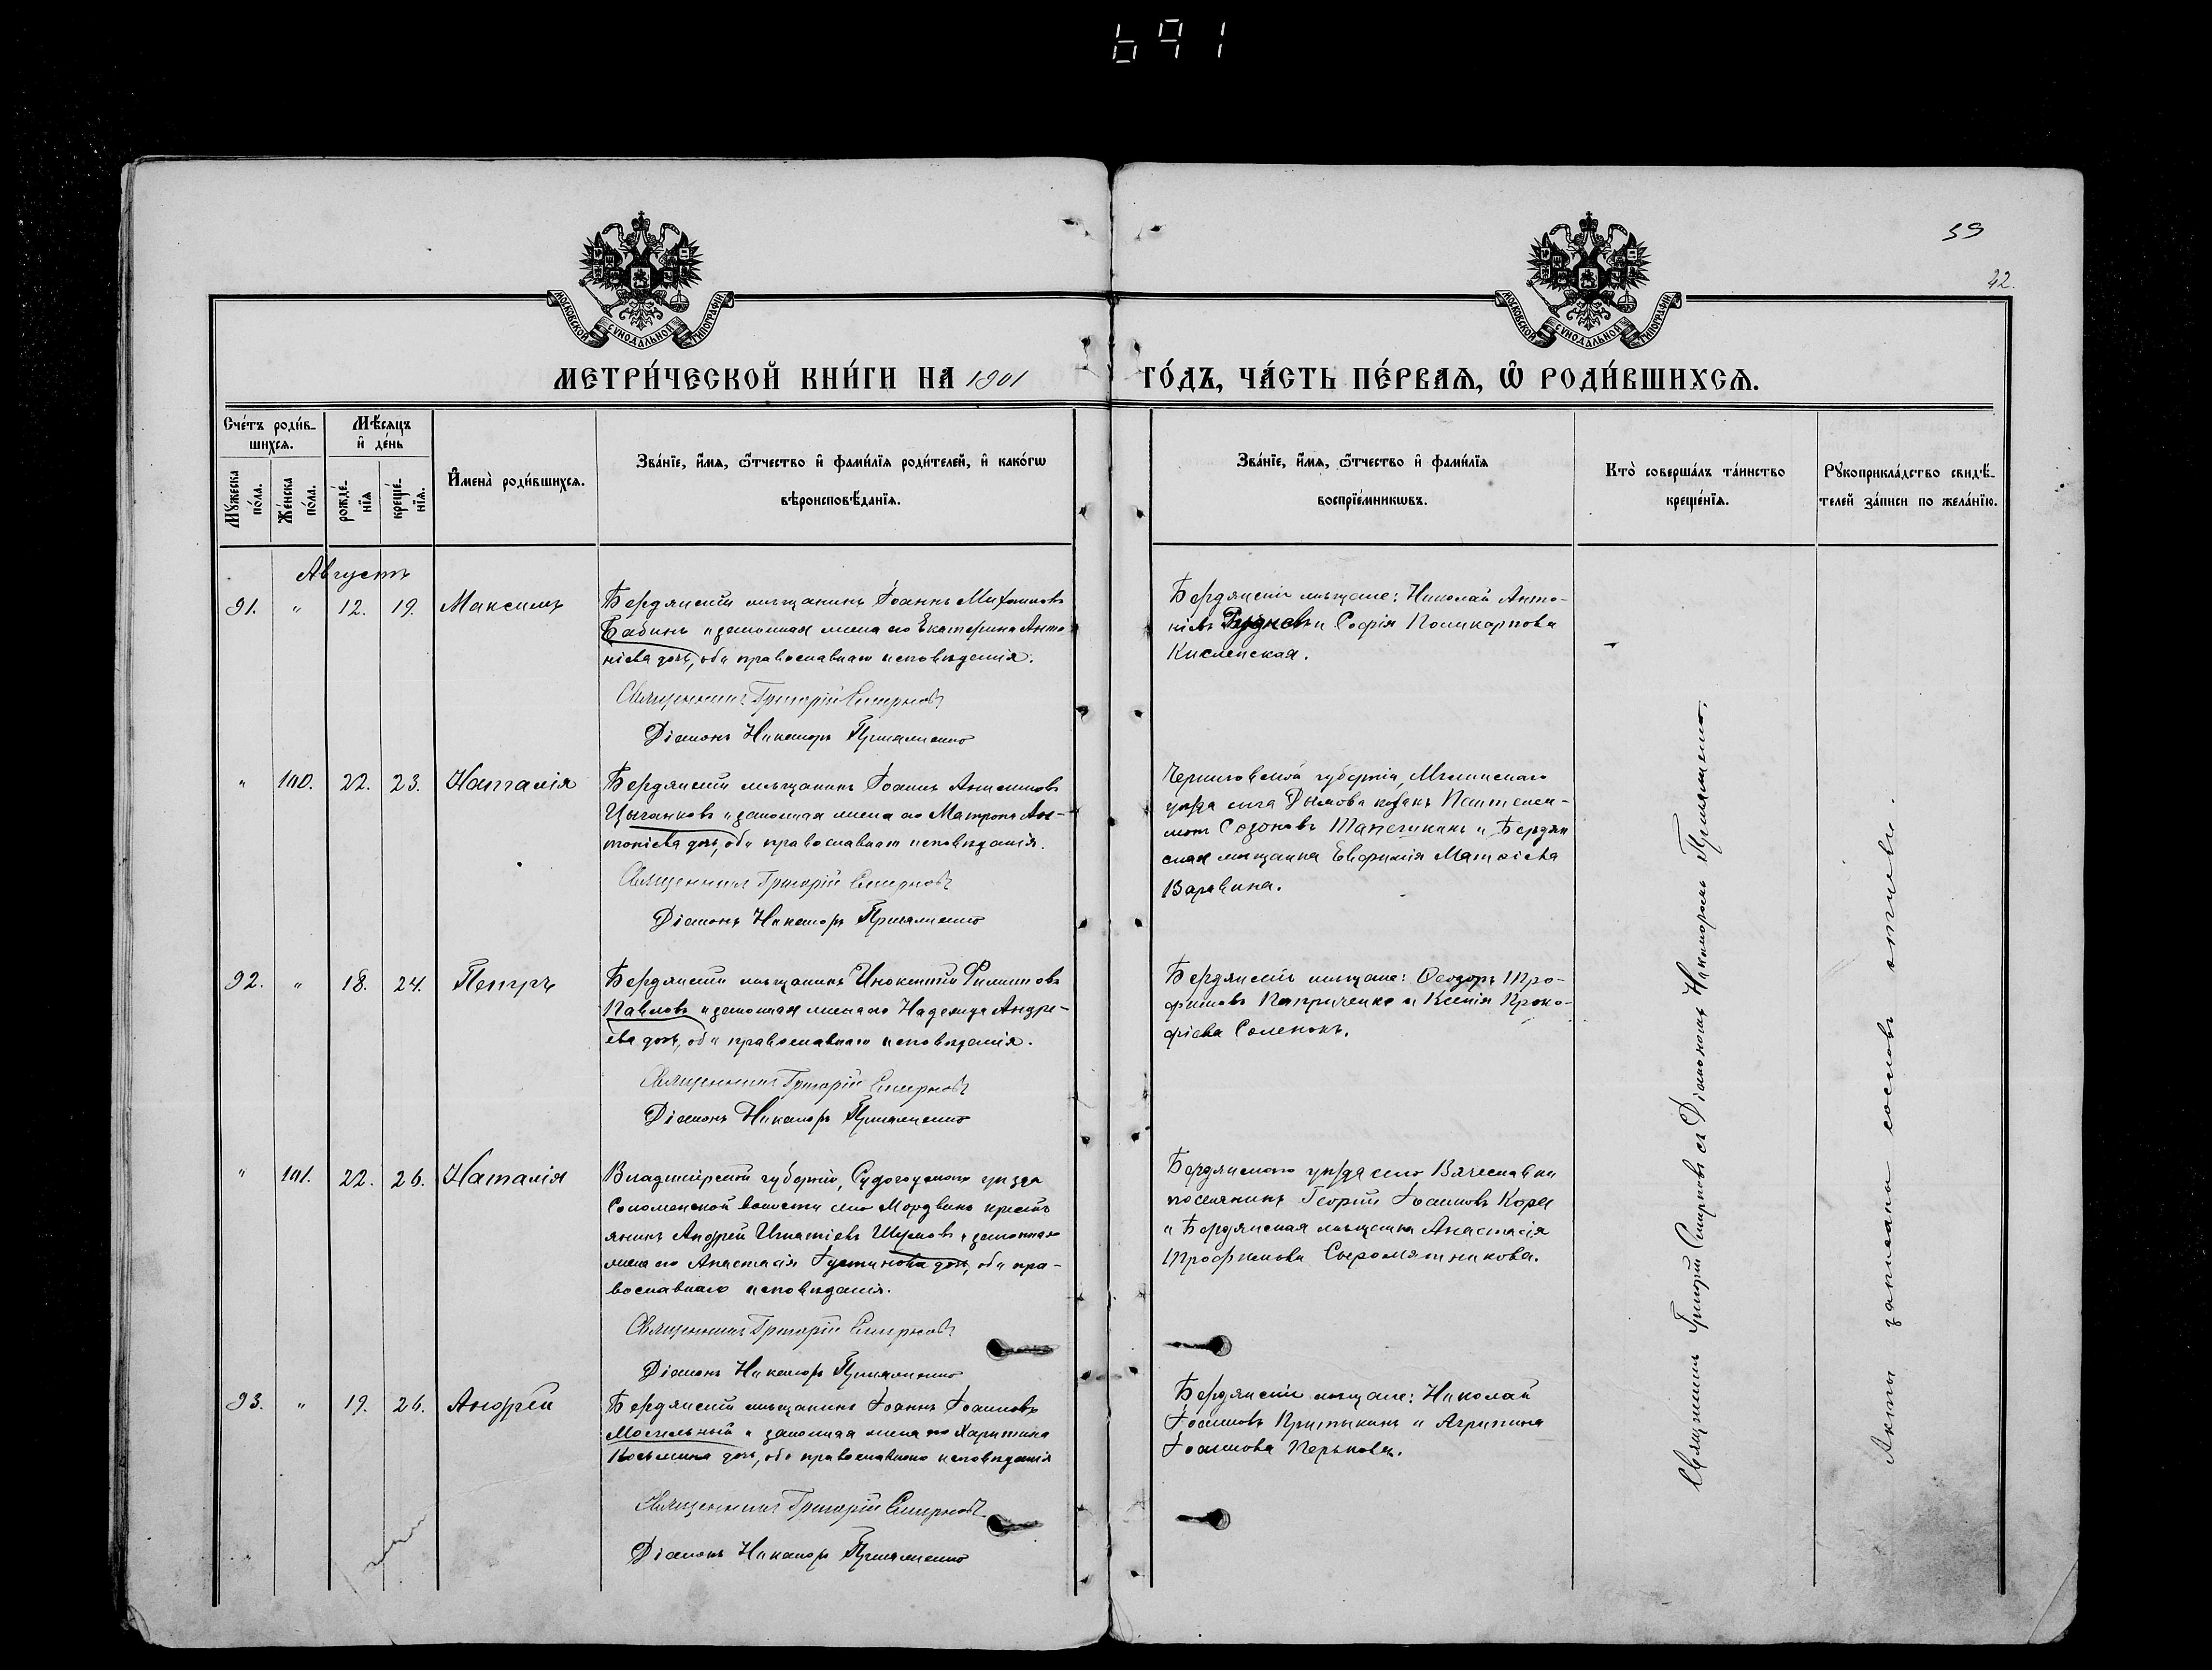 691
59
42.
МОСКОВСКОЙ СѴНОДАЛЬНОЙ ТИПОГРАФІИ
МОСКОВСКОЙ СѴНОДАЛЬНОЙ ТИПОГРАФІИ
МЕТРИ́ЧЕСКОЙ КНИ́ГИ НА 1901 ГО́ДЪ, ЧА́СТЬ ПЕ́РВАѦ, Ѽ РОДИ́ВШИХСѦ.
Сче́тъ роди́в-
шихсѧ.
Мꙋ́жеска по́ла.
Же́нска по́ла.
Мѣ́сѧцъ
и҆ де́нь
рожде́-
нїѧ
креще́-
нїѧ.
И҆мена̀ роди́вшихсѧ.
Зва́нїе, и҆́мѧ, ѻ҆́тчество и҆ фами́лїѧ роди́телей, и҆ како́гѡ
вѣроисповѣ́данїѧ.
Зва́нїе, и҆́мѧ, ѻ҆́тчество и҆ фами́лїѧ
воспрїе́мникѡвъ.
Кто̀ соверша́лъ та́инство
креще́нїѧ.
Рꙋкоприкла́дство свидѣ́-
телей за́писи по жела́нїю.
Августъ
91. " 12. 19. Максимъ
Бердянскій мѣщанинъ Іоаннъ
Бабинъ и законная жена его Екатерина Анто
ніева дочь, оба православнаго исповѣданія.
Священникъ Григорій Смирновъ
Діаконъ Никаноръ
Бердянскіе мѣщане: Николай Анто-
ніевъ Рудневъ и Софія Поликарпова
Кисленская.
" 100. 22. 23. Наталія
Бердянскій мѣщанинъ Іоаннъ Анисимовъ
Цыганковъ и законная жена его Матрона Ан-
тоніева дочь, оба православнаго исповѣданія.
Священникъ Григорій Смирновъ
Діаконъ Никаноръ
Черниговской губерніи, Мглинскаго
уѣзда села Дымова козакъ Пантелей-
монъ Созоновъ и Бердян
ская мѣщанка Евфимія Матѳіева
Варавина.
92. " 18. 24. Петръ
Бердянскій мѣщанинъ Инокентій Филиповъ
Павловъ и законная жена его Надежда Андре-
ева дочь, оба православнаго исповѣданія.
Священникъ Григорій Смирновъ
Діаконъ Никаноръ
Бердянскіе мѣщане: Ѳеодоръ Тро-
фимовъ Каприченко и Ксенія Проко-
фіева Соленокъ.
" 101. 22. 26. Наталія
Владимірской губерніи, Судогодскаго уѣзда
волости село Мордвинъ кресть
янинъ Андрей Игнатіевъ Шумовъ и законная
жена его Анастасія Густинова дочь, оба пра-
вославнаго исповѣданія.
Священникъ Григорій Смирновъ
Діаконъ Никаноръ
Бердянскаго уѣзда села Вячеславки
поселянинъ Георгій Іоанновъ
и Бердянская мѣщанка Анастасія
Трофимова Сыромятникова.
93. " 19. 26. Андрей
Бердянскій мѣщанинъ Іоаннъ Іоанновъ
Могильный и законная жена его Харитина
Косьмина дочь, оба православнаго исповѣданія
Священникъ Григорій Смирновъ
Діаконъ Никаноръ
Бердянскіе мѣщане: Николай
Іоанновъ Притыкинъ и Агрипина
Іоаннова Перькова.
Священникъ Григорій Смирновъ съ Діакономъ Никаноромъ
Акты записаны